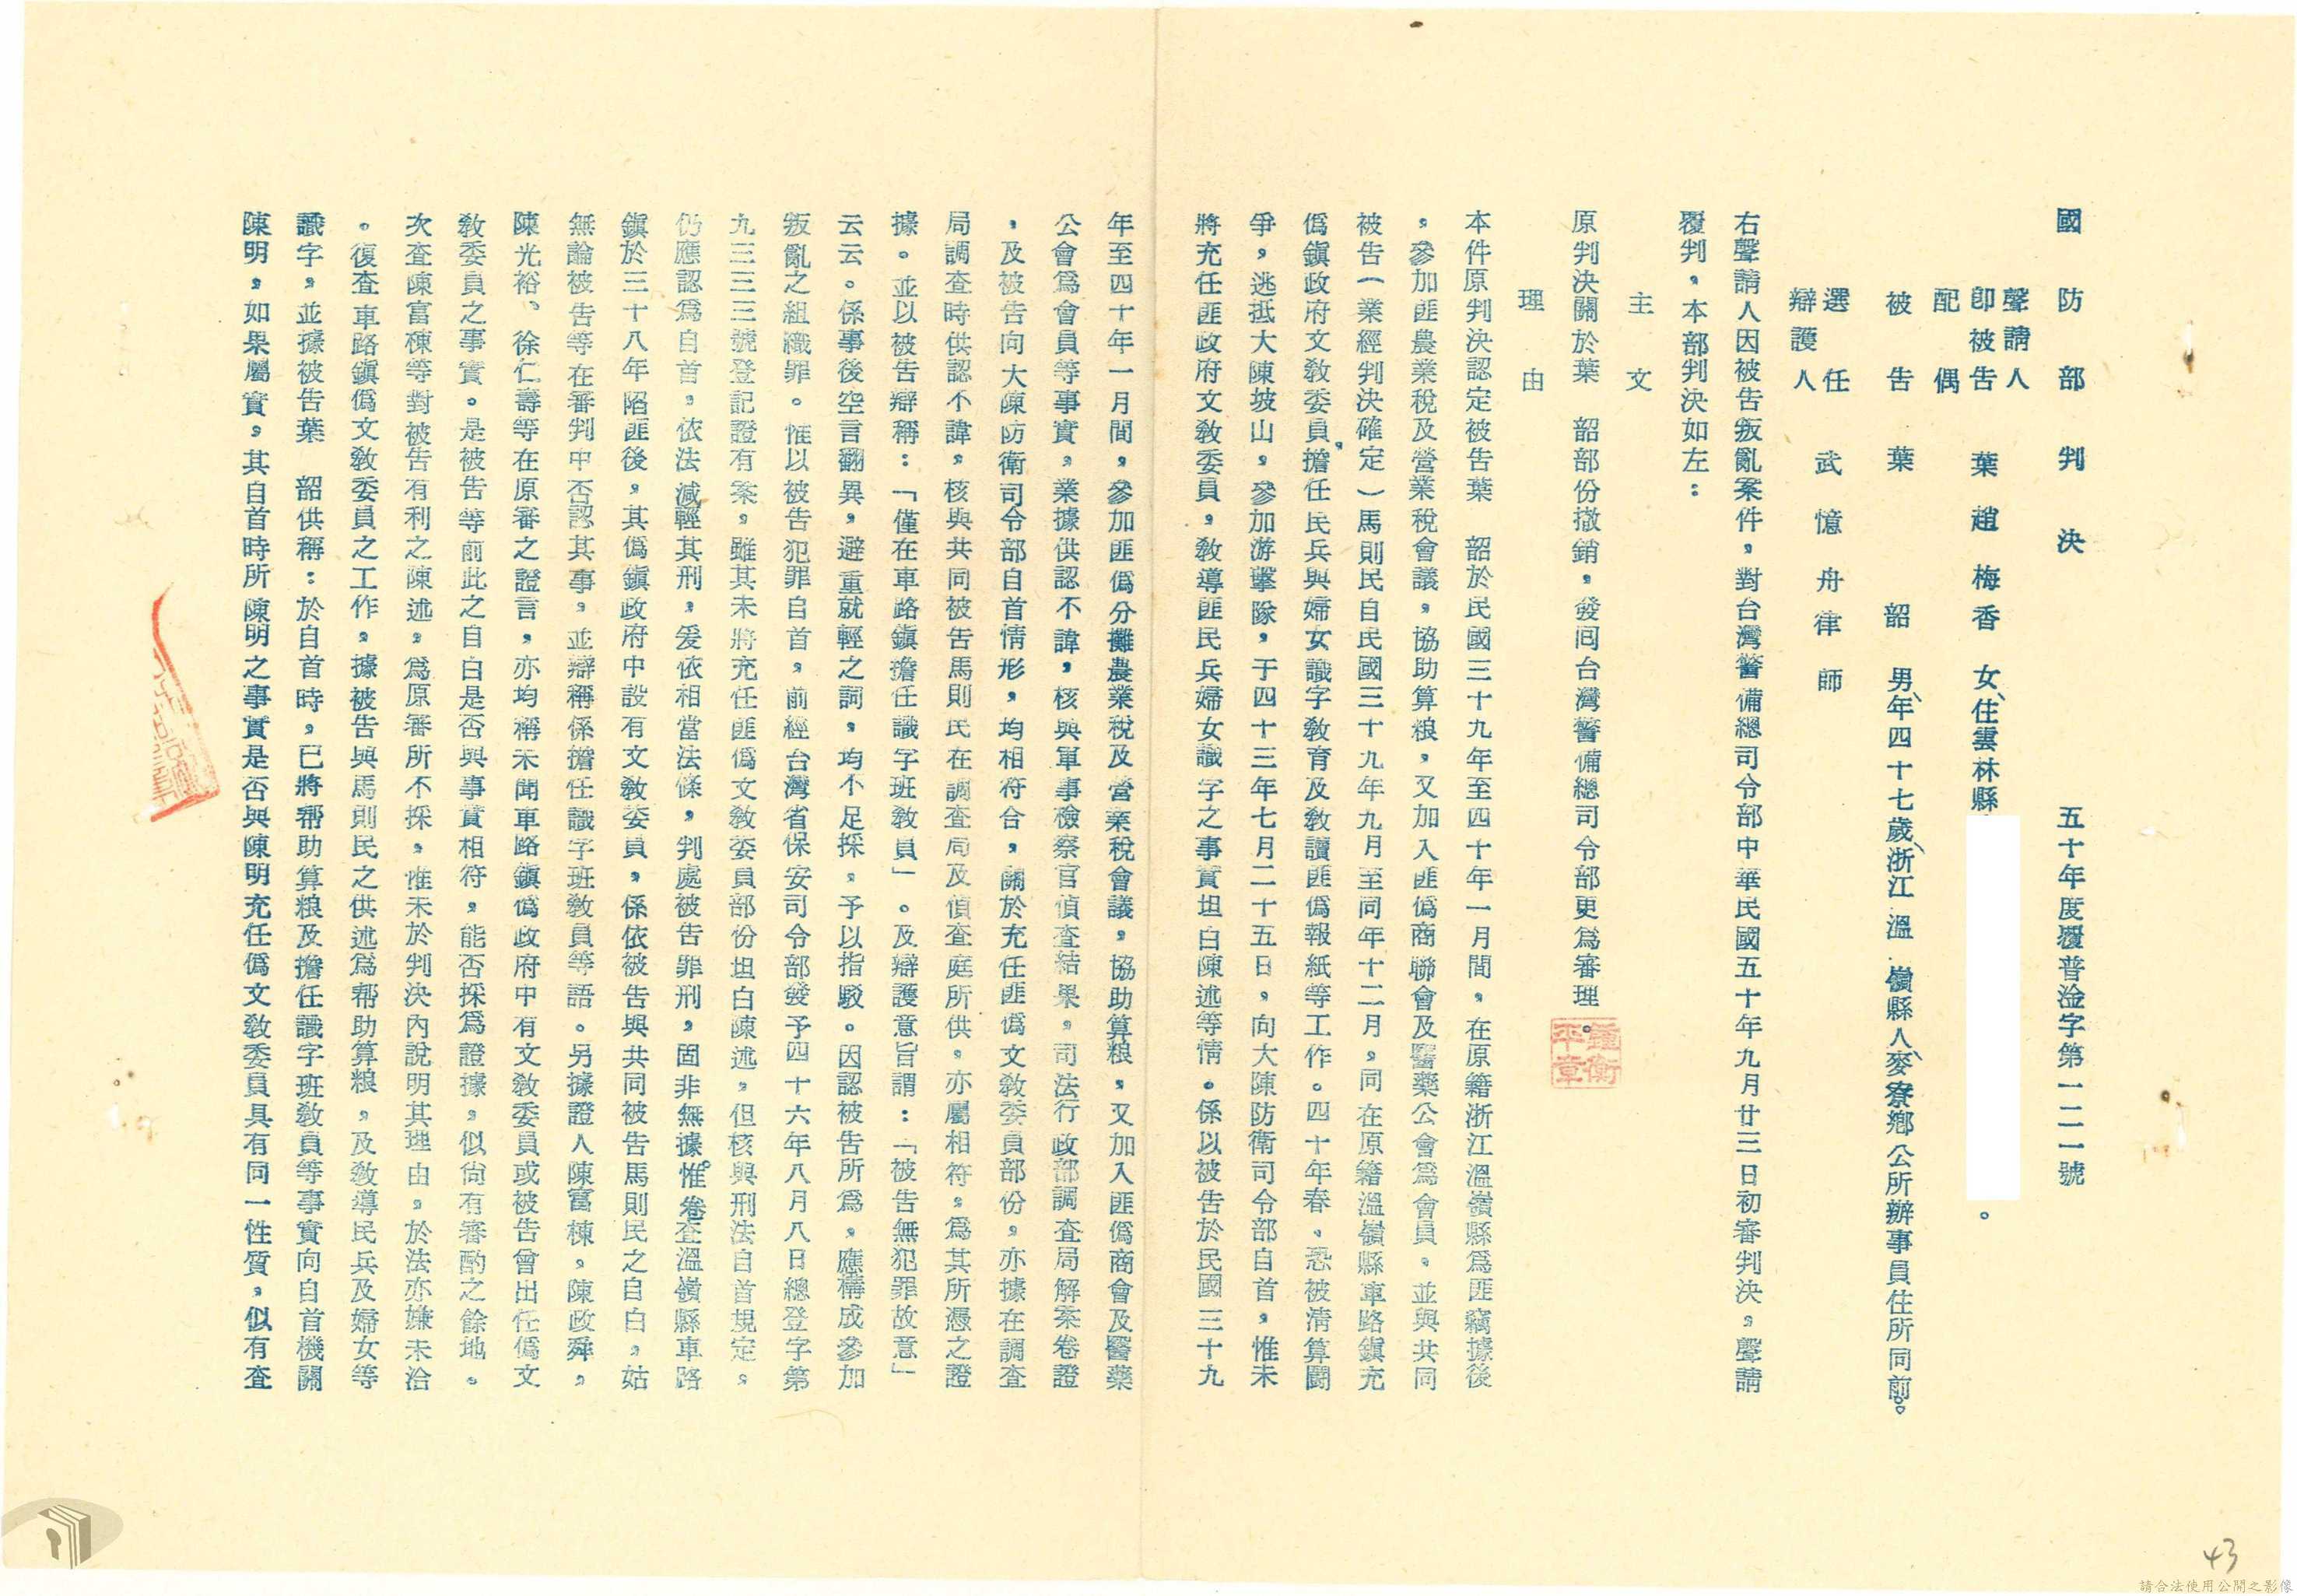 國防部判決　五十年度覆普淦字第一二一號
聲請人
即被告　葉趙梅香　女、住雲林縣　　　。
配偶
被告　葉　韶　男、年四十七歲、浙江溫嶺縣人、麥寮鄉公所辦事員住所同前。
選任
辯護人　武憶舟律師
右聲請人因被告叛亂案件，對台灣警備總司令部中華民國五十年九月廿三日初審判決，聲請
覆判，本部判決如左：
主文
原判決關於葉　韶部份撤銷，發回台灣警備總司令部更為審理。
理由
本件原判決認定被告葉　韶於民國三十九年至四十年一月間，在原籍浙江溫嶺縣為匪竊據後
，參加匪農業稅及營業稅會議，協助算粮，又加入匪偽商聯會及醫藥公會為會員，並與共同
被告（業經判決確定）馬則民自民國三十九年九月至同年十二月，同在原籍溫嶺縣車路鎮充
偽鎮政府文教委員，擔任民兵與婦女識字教育及教讀匪偽報紙等工作。四十年春，恐被清算鬪
爭，逃抵大陳坡山，參加游擊隊，于四十三年七月二十五日，向大陳防衛司令部自首，惟未
將充任匪政府文教委員，教導匪民兵婦女識字之事實坦白陳述等情。係以被告於民國三十九
年至四十年一月間，參加匪偽分攤農業稅及營業稅會議，協助算粮，又加入匪偽商會及醫藥
公會為會員等事實，業據供認不諱，核與軍事檢察官偵查結果，司法行政部調查局解案卷證
，及被告向大陳防衛司令部自首情形，均相符合，關於充任匪偽文教委員部份，亦據在調查
局調查時供認不諱，核與共同被告馬則民在調查局及偵查庭所供，亦屬相符，為其所憑之證
據。並以被告辯稱：「僅在車路鎮擔任識字班教員」。及辯護意旨謂：「被告無犯罪故意」
云云。係事後空言翻異，避重就輕之詞，均不足採，予以指駁。因認被告所為，應構成參加
叛亂之組織罪。惟以被告犯罪自首，前經台灣省保安司令部發予四十六年八月八日總登字第
九三三三號登記證有案，雖其未將充任匪偽文教委員部份坦白陳述，但核與刑法自首規定，
仍應認為自首，依法減輕其刑，爰依相當法條，判處被告罪刑，固非無據。惟卷查溫嶺縣車路
鎮於三十八年陷匪後，其偽鎮政府中設有文教委員，係依被告與共同被告馬則民之自白，姑
無論被告等在審判中否認其事，並辯稱係擔任識字班教員等語。另據證人陳富棟，陳政舜，
陳光裕、徐仁壽等在原審之證言，亦均稱未聞車路鎮偽政府中有文教委員或被告曾出任偽文
教委員之事實。是被告等前此之自白是否與事實相符，能否採為證據，似尚有審酌之餘地。
次查陳富棟等對被告有利之陳述，為原審所不採，惟未於判決內說明其理由，於法亦嫌未洽
。復查車路鎮偽文教委員之工作，據被告與馬則民之供述為帮助算粮，及教導民兵及婦女等
識字，並據被告葉　韶供稱：於自首時，已將帮助算粮及擔任識字班教員等事實向自首機關
陳明，如果屬實，其自首時所陳明之事實是否與陳明充任偽文教委員具有同一性質，似有查
鍾衡平章
43
請合法使用公開之影像